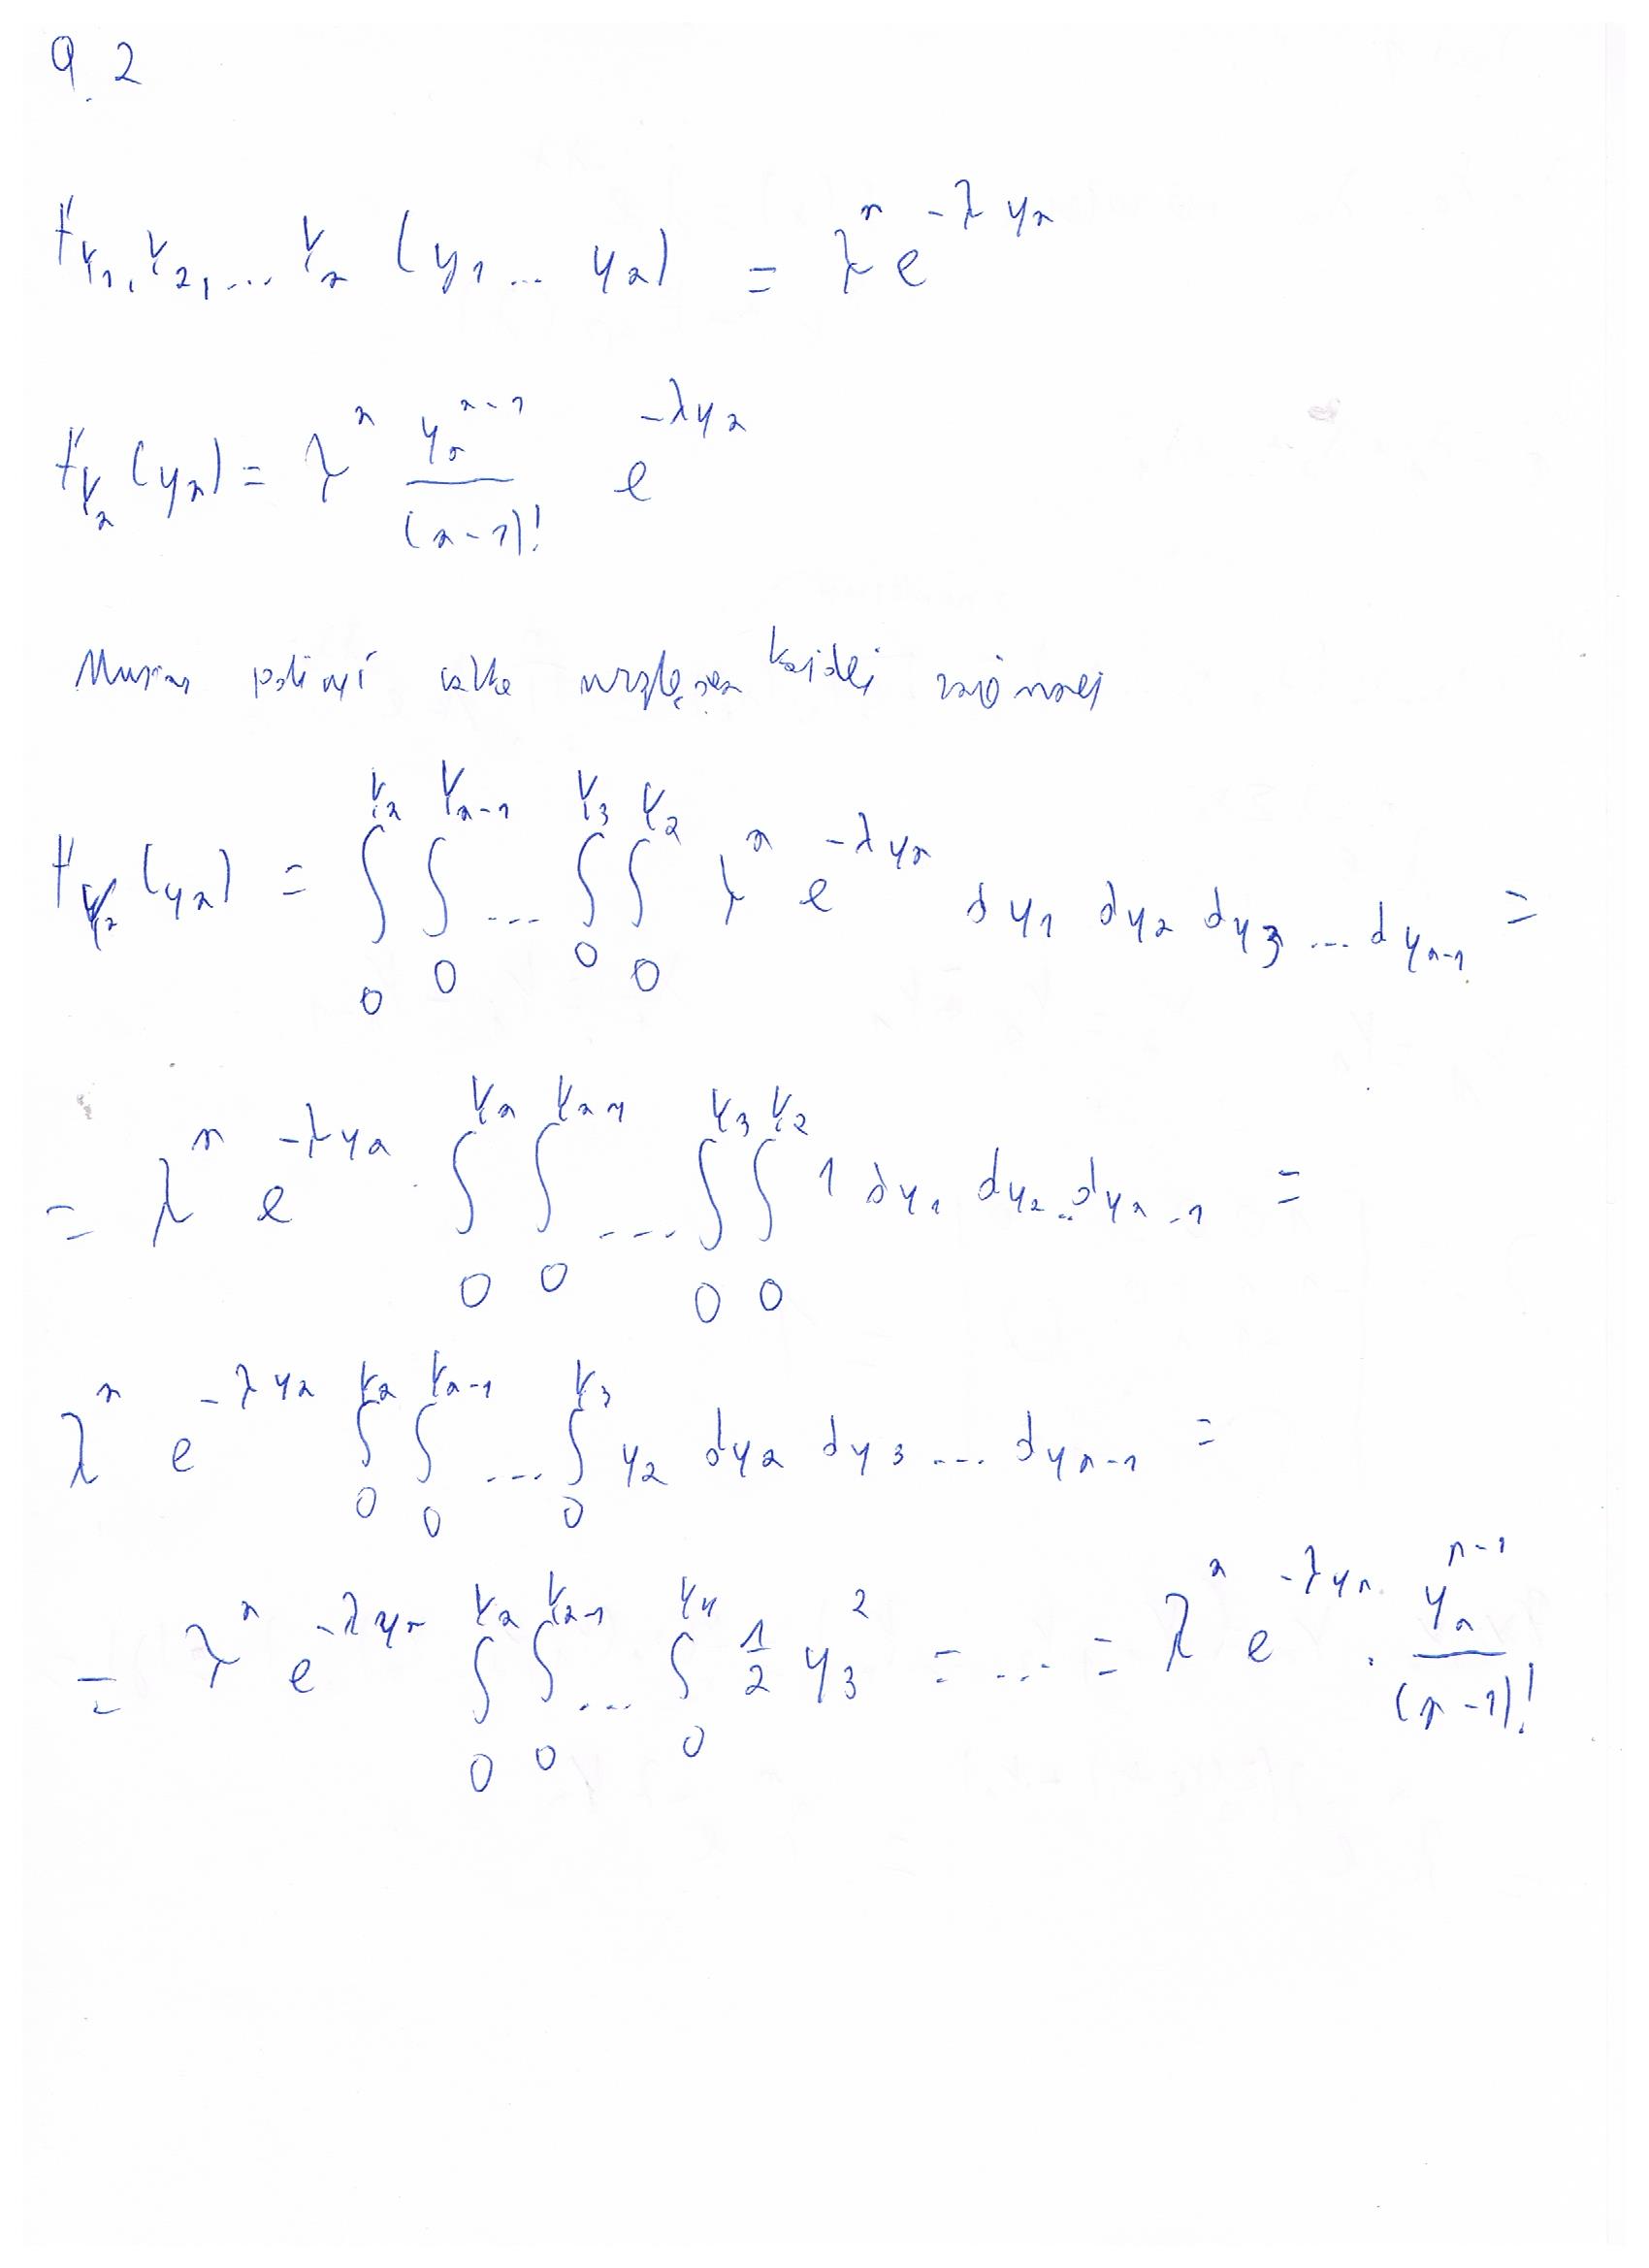 9.2
f_{Y_1, Y_2, ... Y_n} (y_1 ... y_n) = λ^n e^{-λ y_n}
f_{Y_n} (y_n) = λ^n \frac{y_n^{n-1}}{(n-1)!} e^{-λ y_n}
Muszę policzyć całkę względem każdej zmiennej
f_{Y_n} (y_n) = ∫_0^{Y_n} ∫_0^{Y_{n-1}} ... ∫_0^{Y_3} ∫_0^{Y_2} λ^n e^{-λ y_n} dy_1 dy_2 dy_3 ... dy_{n-1} =
= λ^n e^{-λ y_n} · ∫_0^{Y_n} ∫_0^{Y_{n-1}} ... ∫_0^{Y_3} ∫_0^{Y_2} 1 dy_1 dy_2 .. dy_{n-1} =
λ^n e^{-λ y_n} ∫_0^{Y_n} ∫_0^{Y_{n-1}} ... ∫_0^{Y_3} y_2 dy_2 dy_3 ... dy_{n-1} =
= λ^n e^{-λ y_n} ∫_0^{Y_n} ∫_0^{Y_{n-1}} ... ∫_0^{Y_4} \frac{1}{2} y_3^2 = ... = λ^n e^{-λ y_n} · \frac{y_n^{n-1}}{(n-1)!}